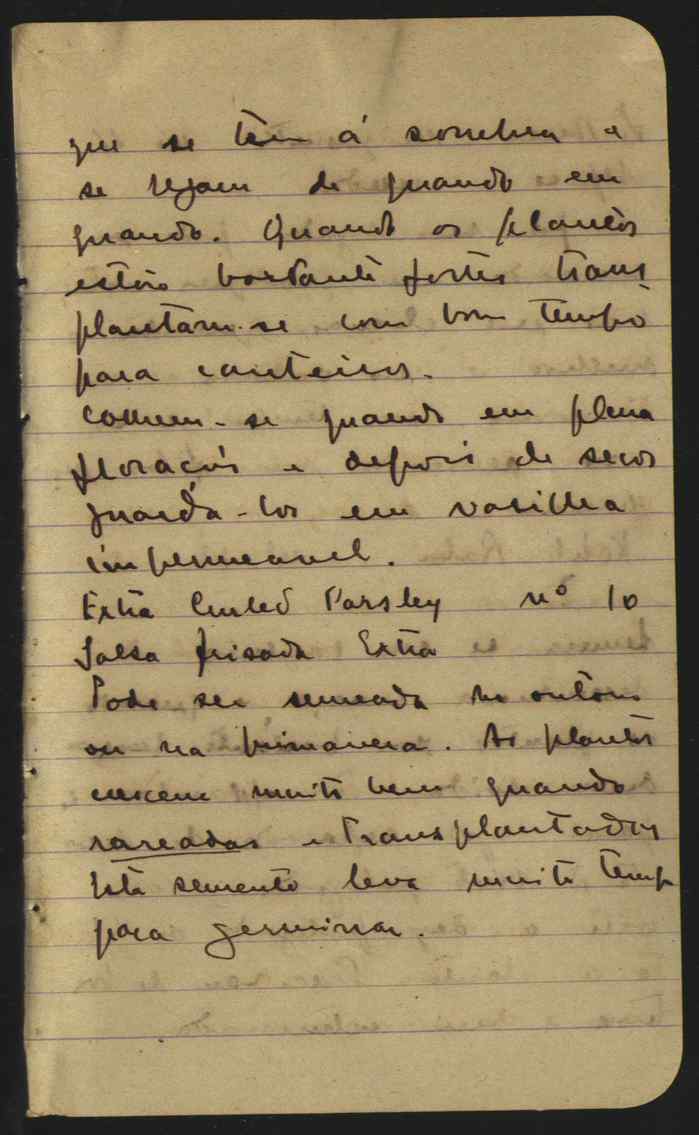 que se têm á sombra e
se regam de quando em
quando. Quando as plantas
estão bastante fortes trans
plantam-se com bom tempo
para canteiros.
Comem-se quando em plena
floração e depois de secos
guardá-los em vasilha
impermeavel.
Extra Curled Parsley nº 10
Salsa frisada Extra
Pode ser semeada no outono
ou na primavera. As plantas
crescem muito bem quando
rareadas e transplantadas
Esta semente leva muito tempo
para germinar.